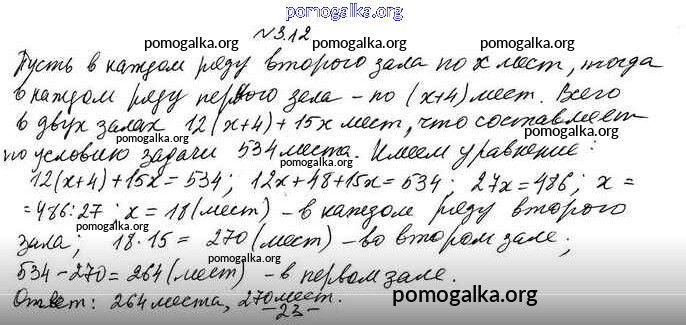 pomogalka.org
№3.12
pomogalka.org pomogalka.org
Пусть в каждом ряду второго зала по x мест, тогда
в каждом ряду первого зала – по (x+4) мест. Всего
pomogalka.org pomogalka.org
в двух залах 12(x+4)+15x мест, что составляет
по условию задачи 534 места. Имеем уравнение:
pomogalka.org pomogalka.org
12(x+4)+15x=534; 12x+48+15x=534; 27x=486; x=
pomogalka.org pomogalka.org
=486:27; x=18 (мест) – в каждом ряду второго
pomogalka.org pomogalka.org
зала; 18·15=270 (мест) – во втором зале;
pomogalka.org
534-270=264 (мест) – в первом зале.
Ответ: 264 места, 270 мест.
pomogalka.org
–23–